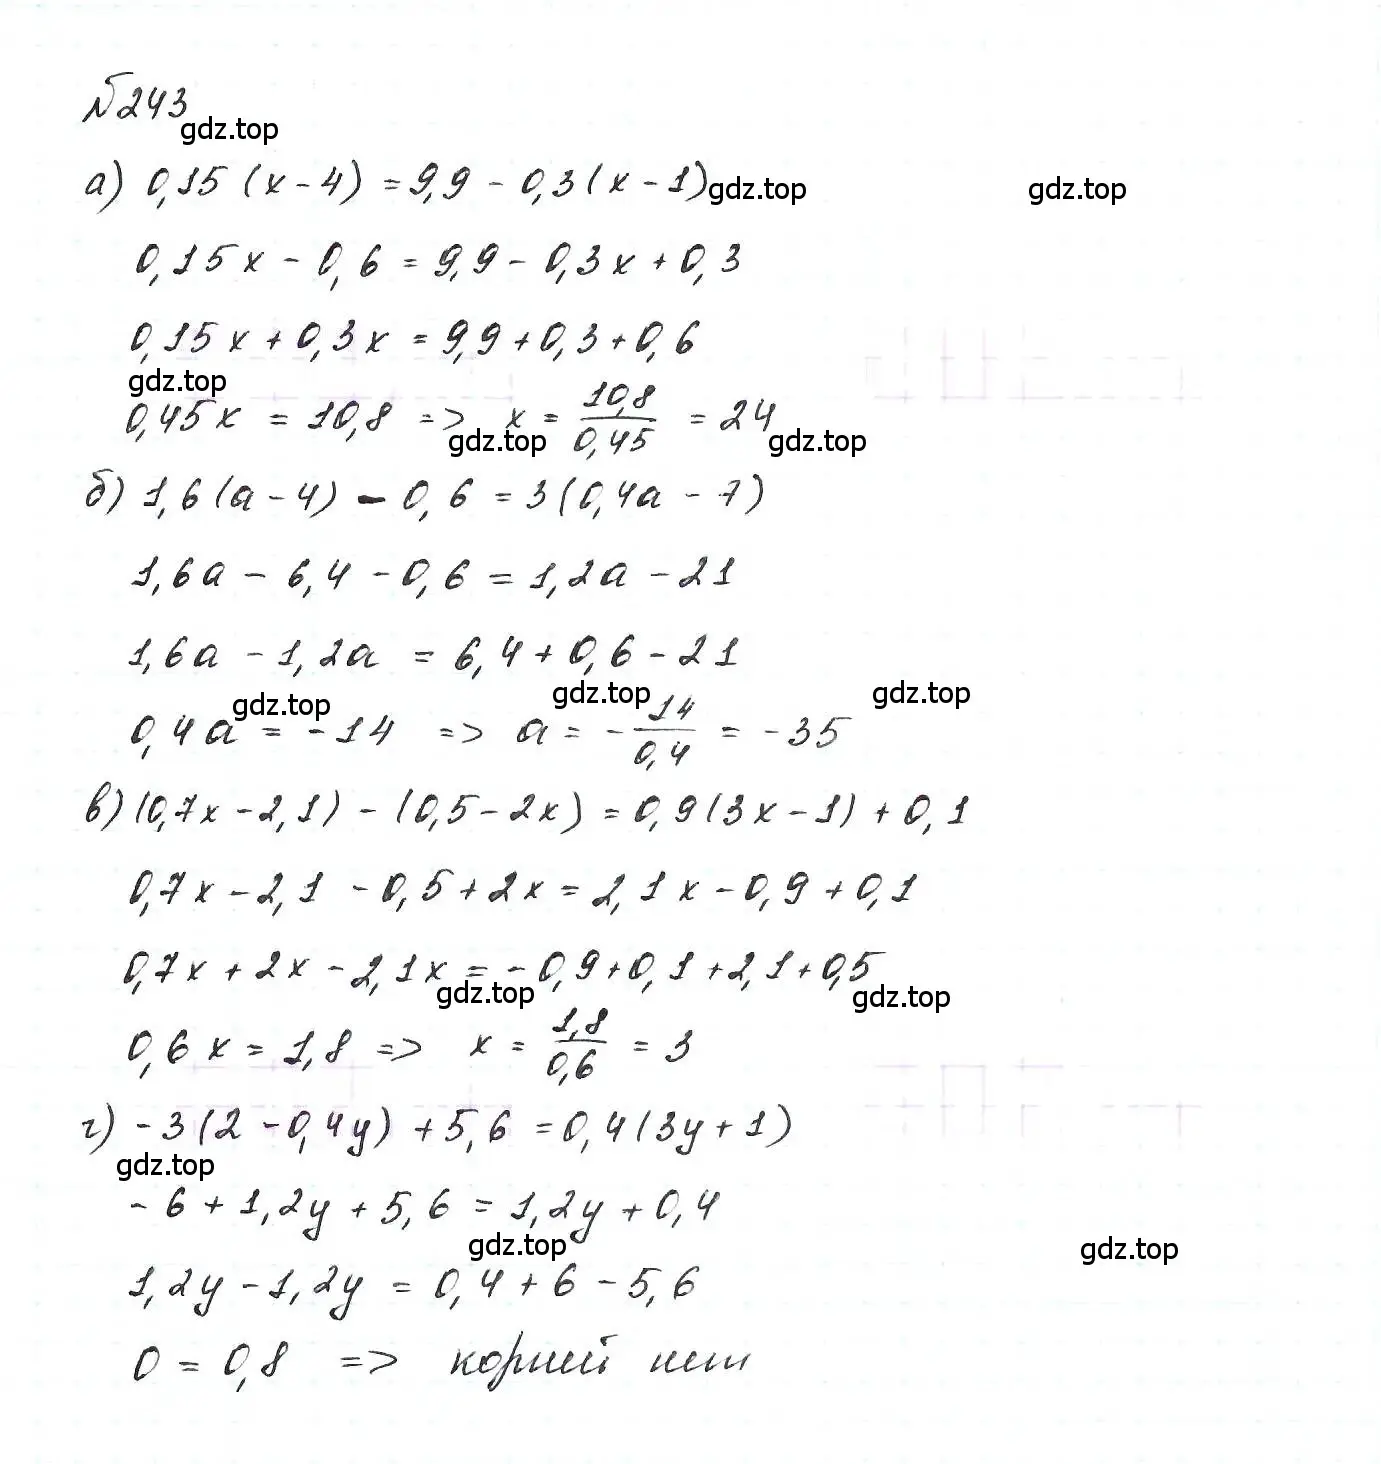 №243
gdz.top
а) 0,15(x-4) = 9,9 - 0,3(x-1) gdz.top gdz.top
0,15x - 0,6 = 9,9 - 0,3x + 0,3
0,15x + 0,3x = 9,9 + 0,3 + 0,6
gdz.top
0,45x = 10,8 => x = 10,8/0,45 = 24
gdz.top gdz.top
б) 1,6(a-4) - 0,6 = 3(0,4a - 7)
1,6a - 6,4 - 0,6 = 1,2a - 21
1,6a - 1,2a = 6,4 + 0,6 - 21
gdz.top gdz.top gdz.top
0,4a = -14 => a = -14/0,4 = -35
в) (0,7x - 2,1) - (0,5 - 2x) = 0,9(3x - 1) + 0,1
0,7x - 2,1 - 0,5 + 2x = 2,1x - 0,9 + 0,1
0,7x + 2x - 2,1x = -0,9 + 0,1 + 2,1 + 0,5
gdz.top gdz.top
0,6x = 1,8 => x = 1,8/0,6 = 3
г) -3(2 - 0,4y) + 5,6 = 0,4(3y + 1)
gdz.top
-6 + 1,2y + 5,6 = 1,2y + 0,4
gdz.top gdz.top
1,2y - 1,2y = 0,4 + 6 - 5,6
0 = 0,8 => корней нет